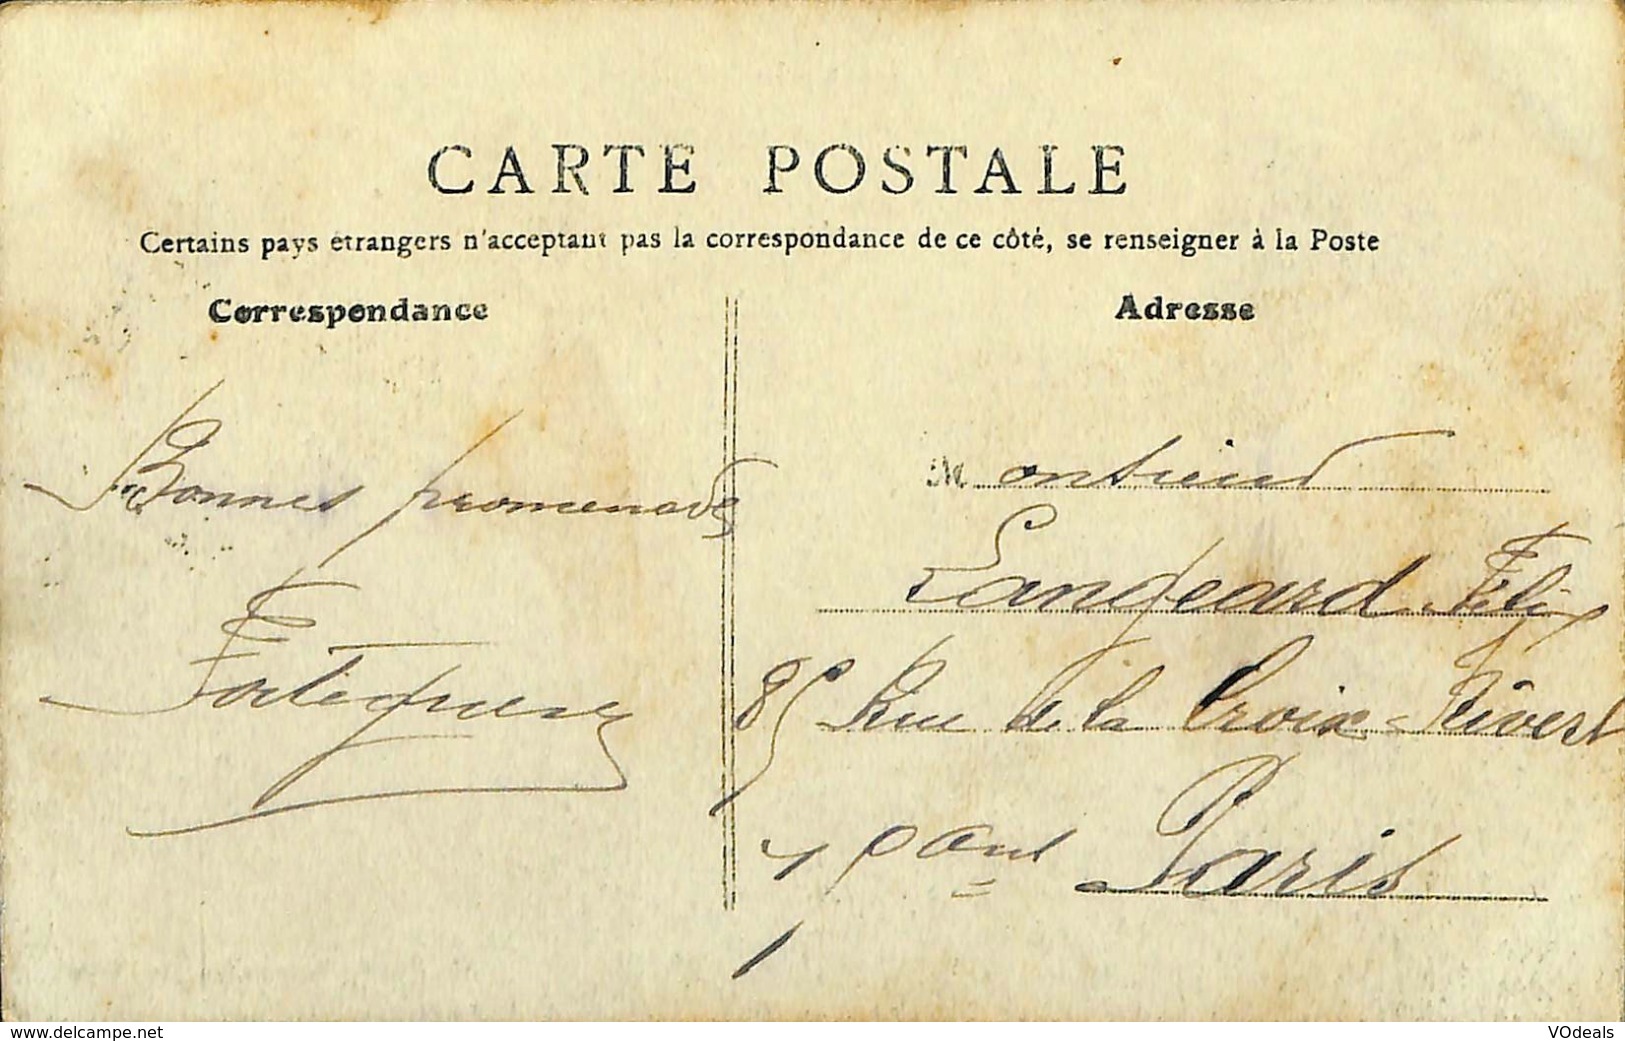 CARTE POSTALE
Certains pays étrangers n'acceptant pas la correspondance de ce côté, se renseigner à la Poste
Correspondance
Adresse
Bonnes promenades
Monsieur
Langeard Félix
85 Rue de la Croix-Nivert
Paris
www.delcampe.net
VOdeals